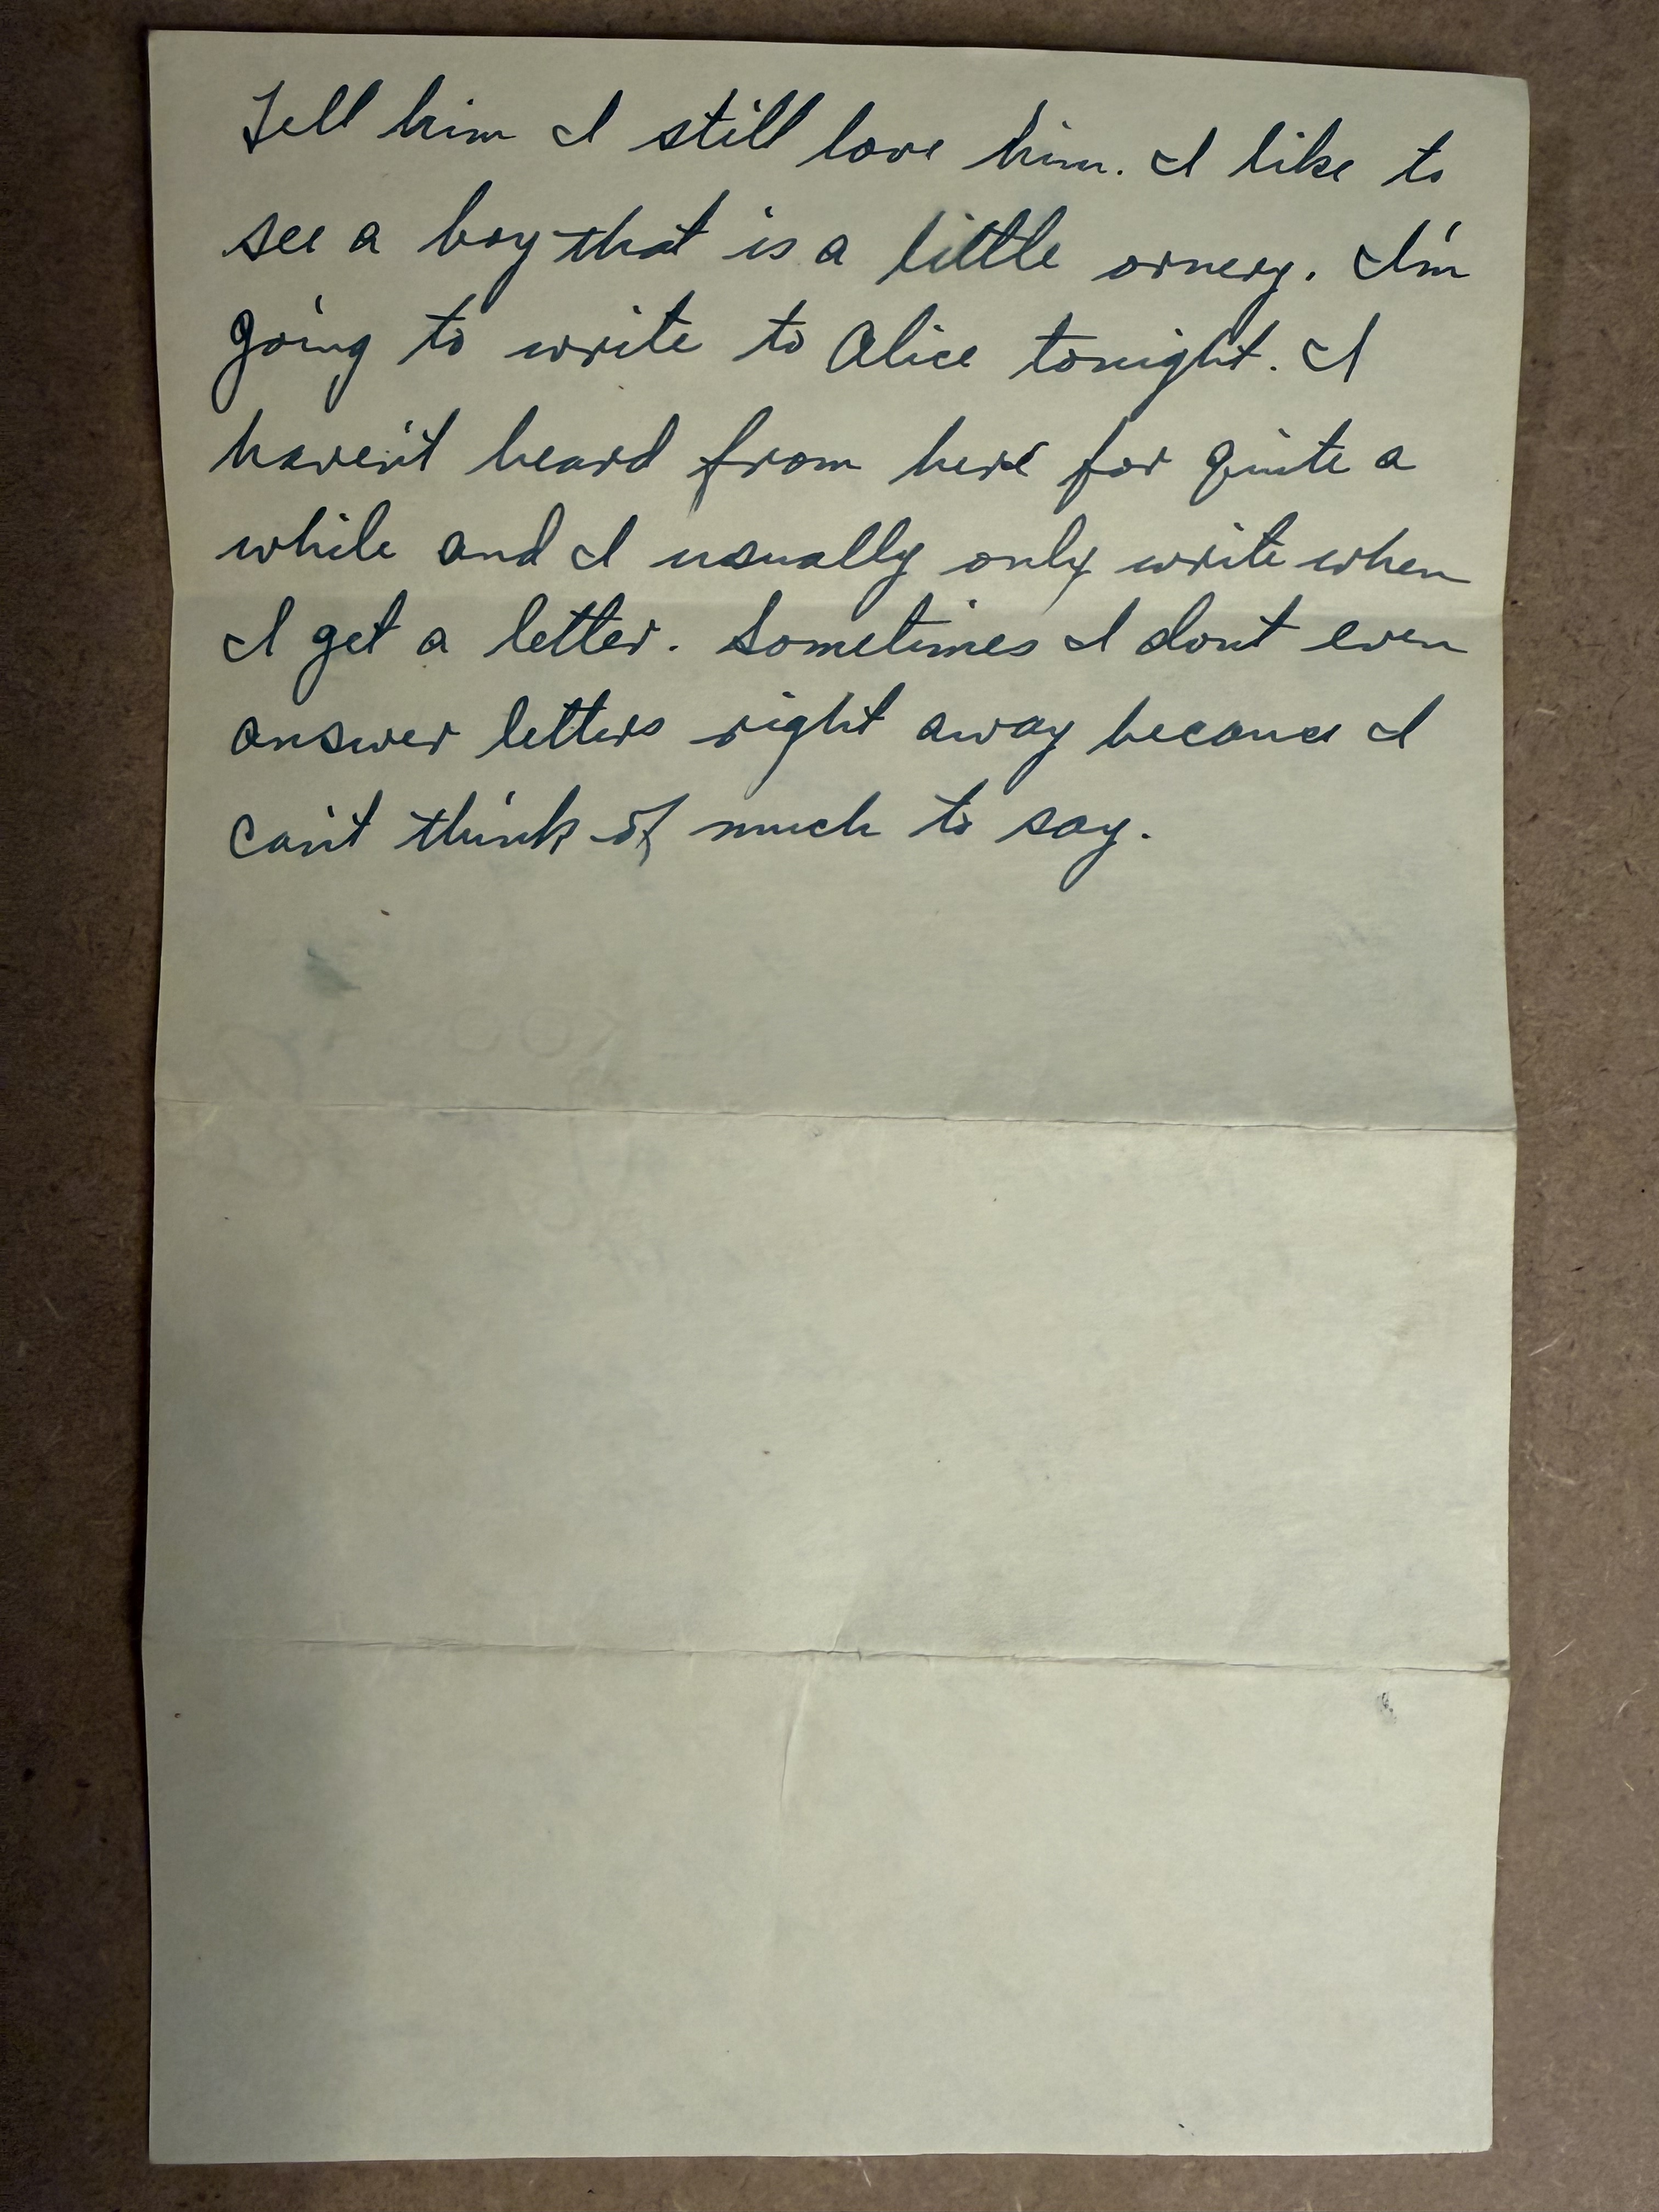 Tell him I still love him. I like to
see a boy that is a little ornery. I'm
going to write to Alice tonight. I
haven't heard from here for quite a
while and I usually only write when
I get a letter. Sometimes I dont even
answer letters right away because I
can't think of much to say.